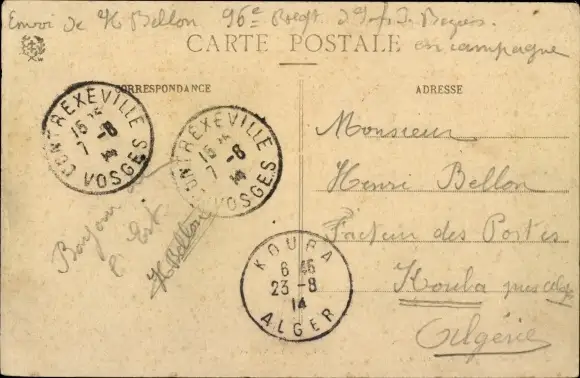 Envoi de H Bellon 96e Reegt d'Inf. Béziers.
en campagne
CARTE POSTALE
CORRESPONDANCE
ADRESSE
CONTREXEVILLE
15
7 -8
14
VOSGES
CONTREXEVILLE
15
7 -8
14
VOSGES
Bonjour
l'Est
H Bellon
KOUBA
6 45
23 -8
14
ALGER
Monsieur
Henri Bellon
Facteur des Postes
Kouba près Alger
Algérie